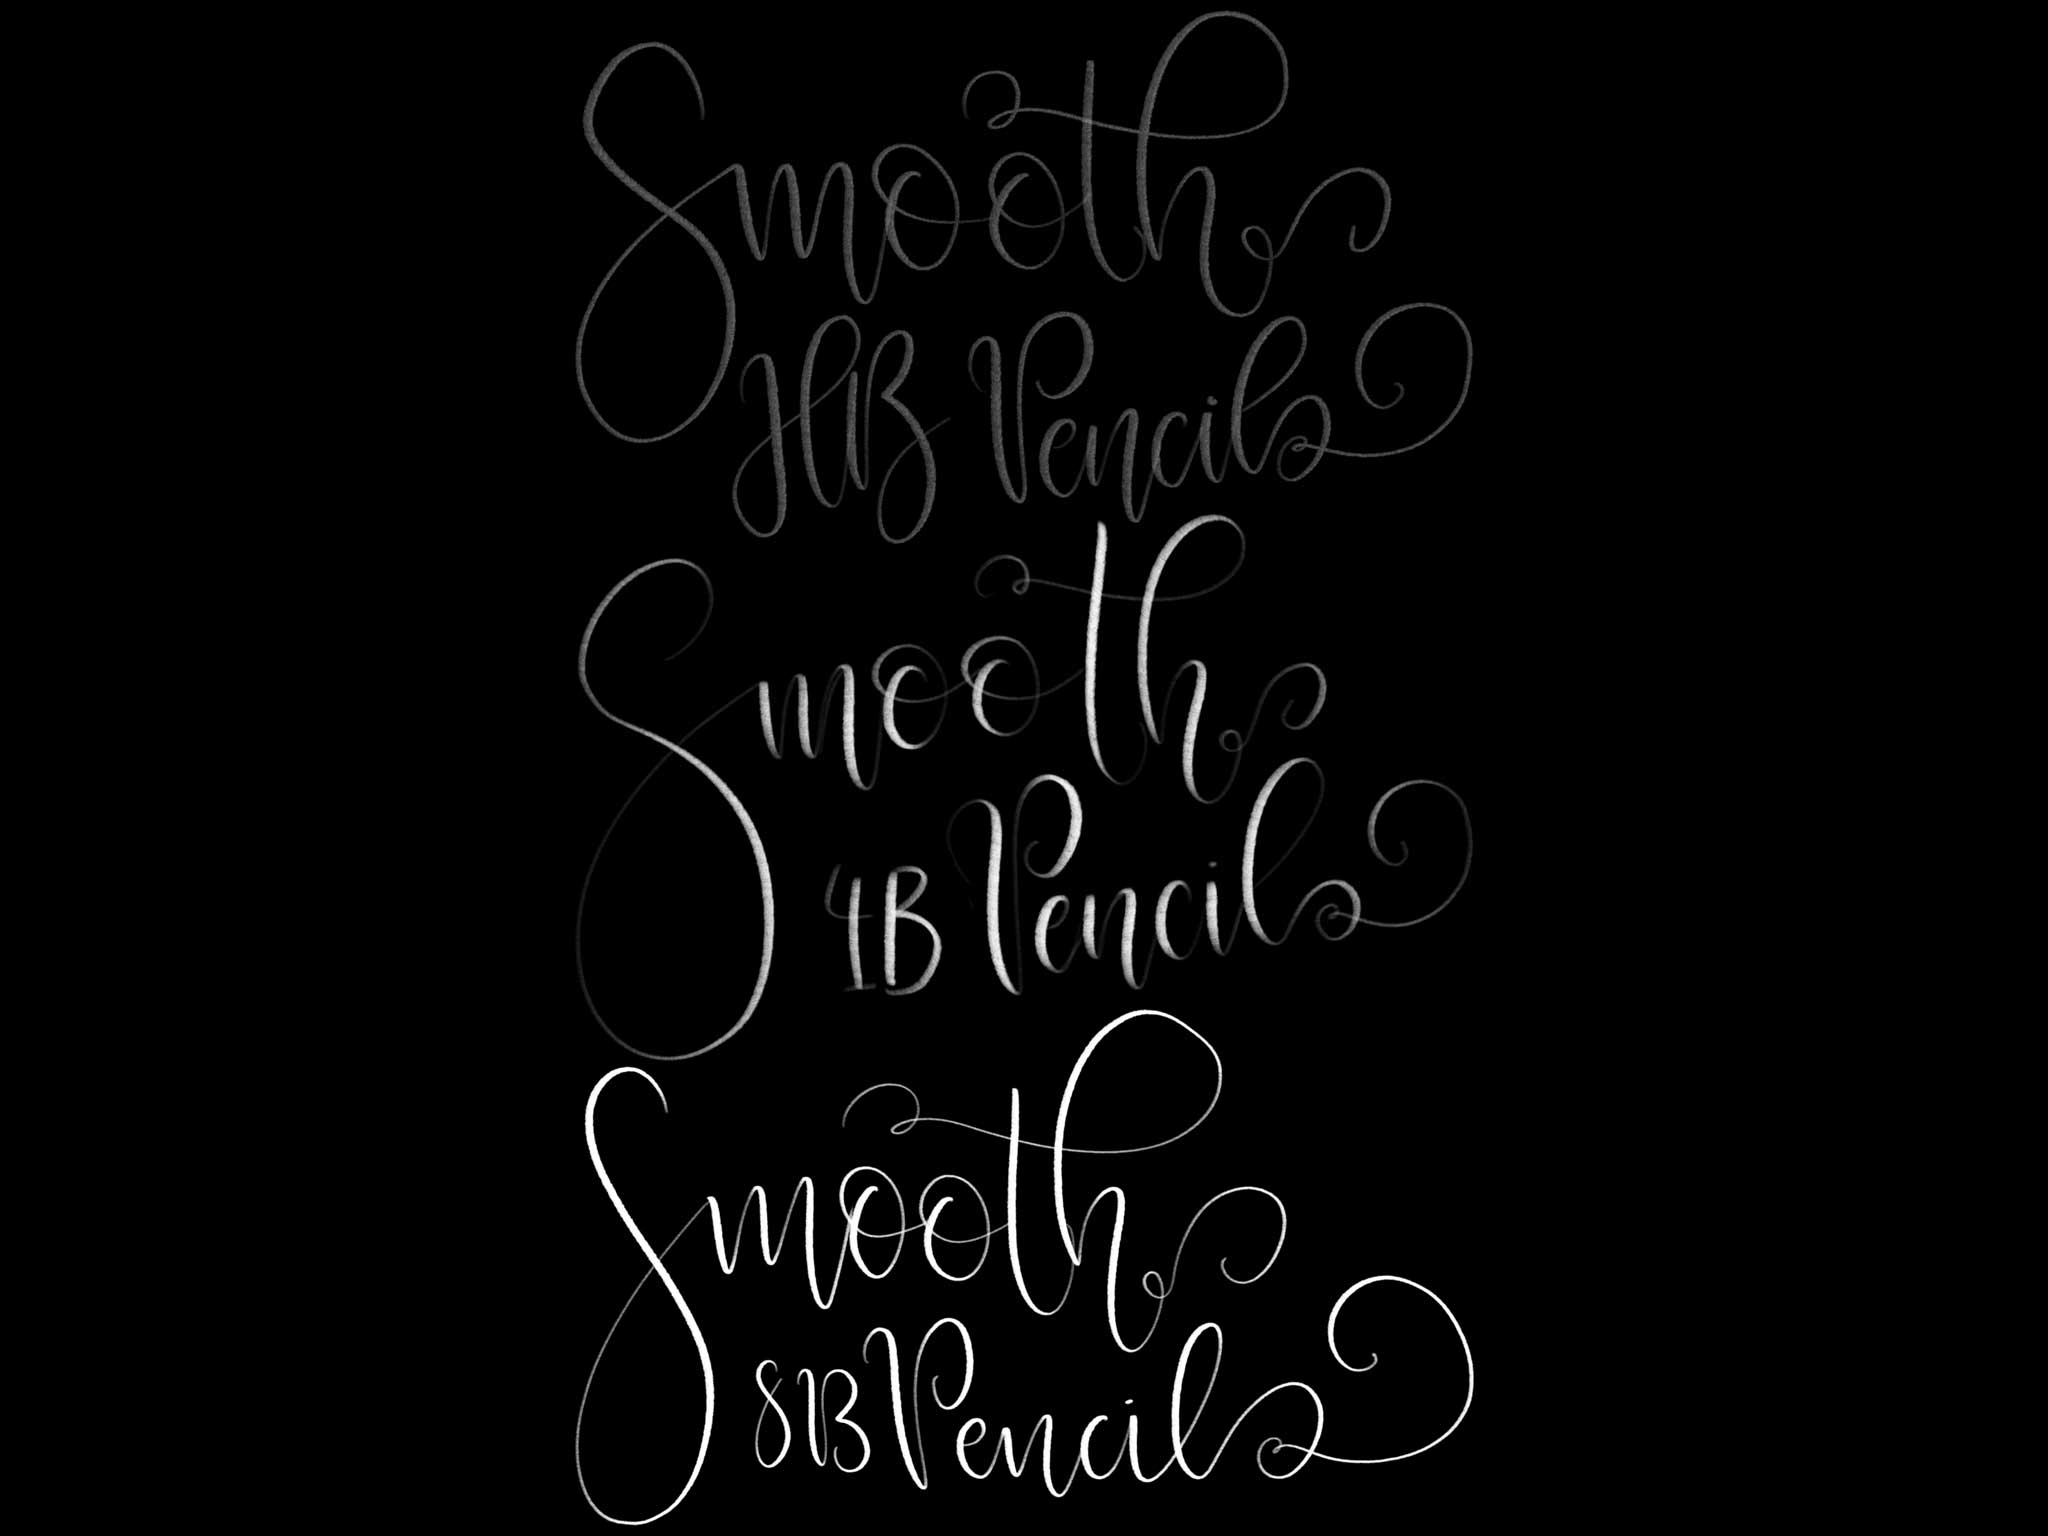 Smooth
HB Pencil
Smooth
4B Pencil
Smooth
8B Pencil